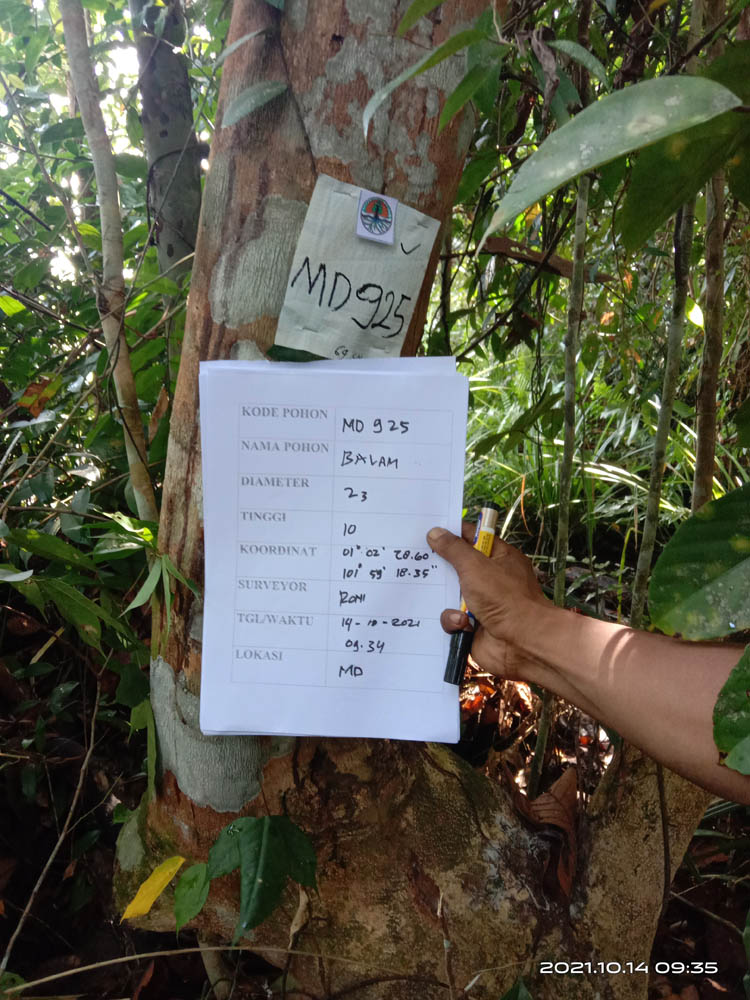 MD925
KODE POHON MD 925
NAMA POHON BALAM
DIAMETER 23
TINGGI 10
KOORDINAT 01° 02' 28.60"
101° 59' 18.35"
SURVEYOR RONI
TGL/WAKTU 14-10-2021
09.34
LOKASI MD
2021.10.14 09:35